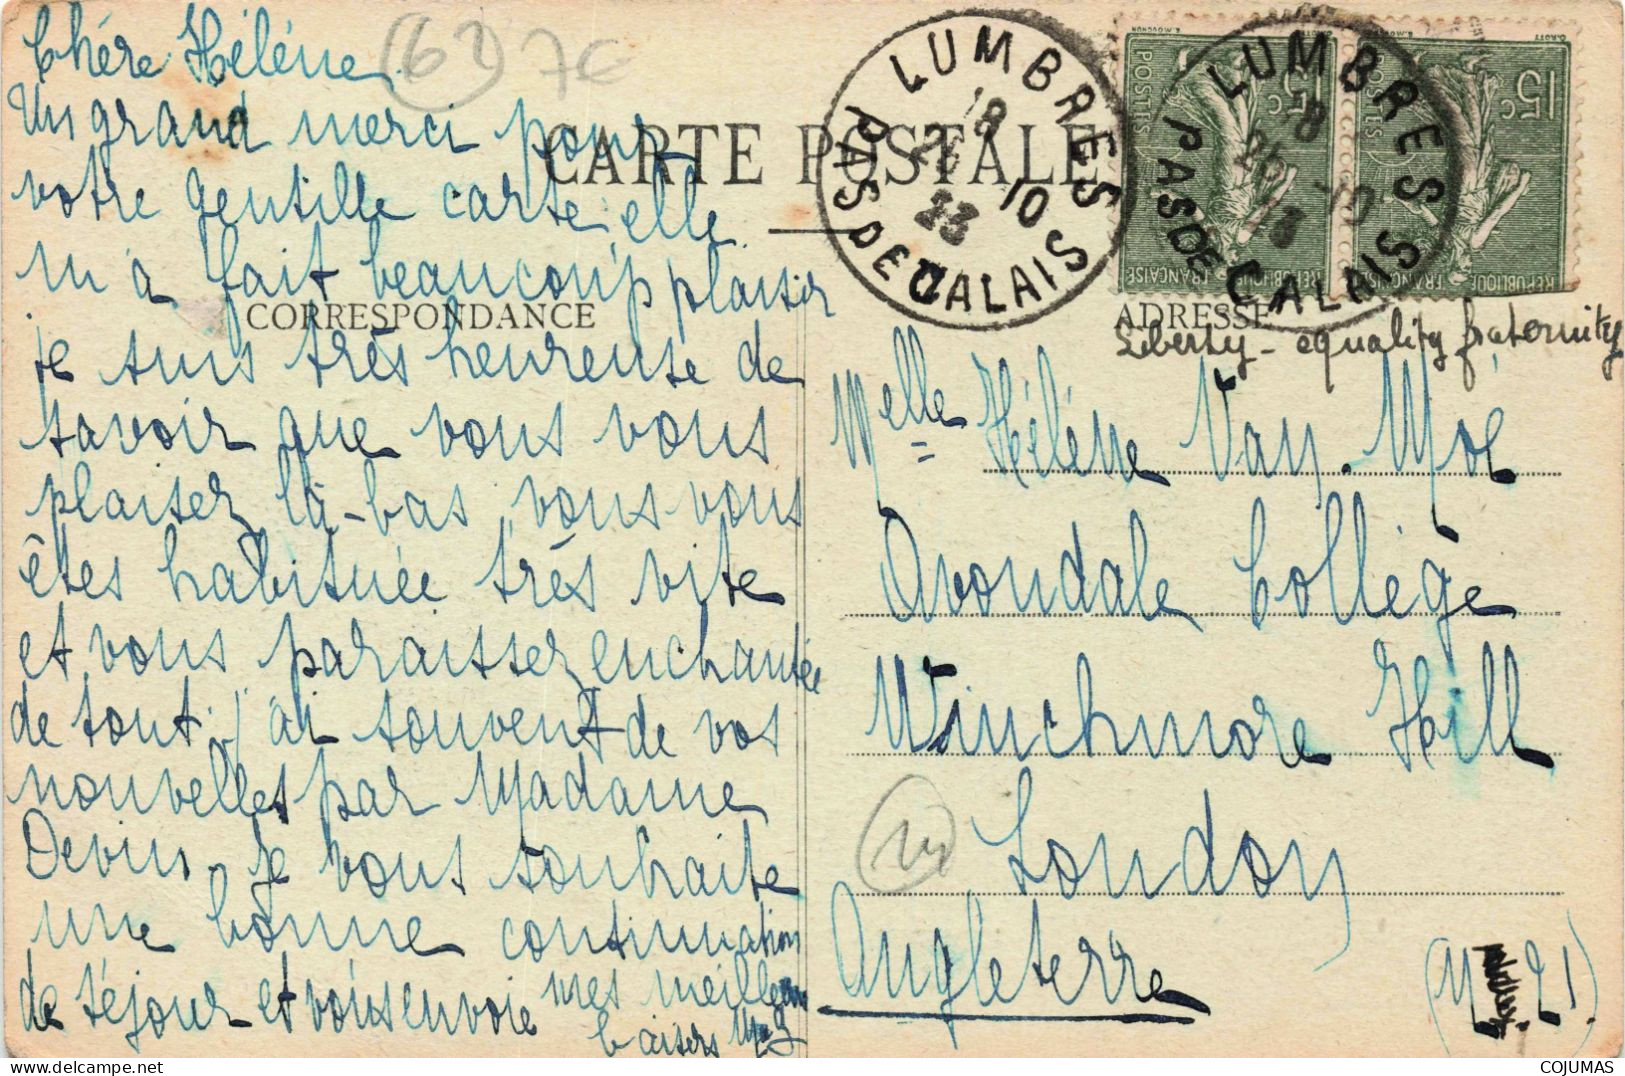 Chère Hélène
Un grand merci pour
votre gentille carte, elle
m'a fait beaucoup plaisir
je suis très heureuse de
savoir que vous vous
plaisez là-bas, vous vous
êtes habituée très vite
et vous paraissez enchantée
de tout. j'ai souvent de vos
nouvelles par Madame
Devin. Je vous souhaite
une bonne continuation
de séjour et vous envoie mes meilleurs
baisers
62 7€
CARTE POSTALE
CORRESPONDANCE
ADRESSE
LUMBRES
PAS DE CALAIS
18
26 10
23
LUMBRES
PAS DE CALAIS
18
26 10
23
POSTES
15c
RÉPUBLIQUE FRANÇAISE
POSTES
15c
RÉPUBLIQUE FRANÇAISE
Liberty - equality fraternity
Melle Hélène Van. Moé
Avondale Collège
Winchmore Hill
London
Angleterre
COJUMAS